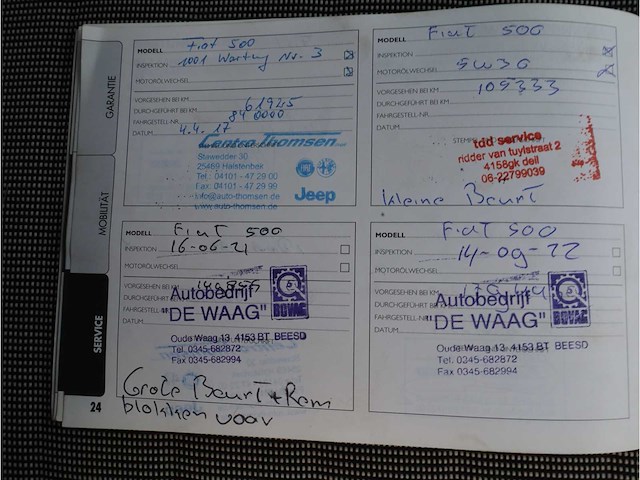 GARANTIE
MOBILITÄT
SERVICE
24
MODELL Fiat 500
INSPEKTION 1001 Wartung Nr. 3
MOTORÖLWECHSEL
VORGESEHEN BEI KM 61925
DURCHGEFÜHRT BEI KM
FAHRGESTELL-NR.
DATUM 4.4.17
Centro Thomsen
Stawedder 30
25469 Halstenbek
Tel.: 04101 - 47 29 00
Fax: 04101 - 47 29 99
info@auto-thomsen.de
www.auto-thomsen.de
Jeep
MODELL Fiat 500
INSPEKTION
MOTORÖLWECHSEL 5W30
VORGESEHEN BEI KM 105333
DURCHGEFÜHRT BEI KM
FAHRGESTELL-NR.
DATUM
tdd service
ridder van tuylstraat 2
4158gk deil
06-22799039
kleine Beurt
MODELL Fiat 500
INSPEKTION 16-06-21
MOTORÖLWECHSEL
VORGESEHEN BEI KM
DURCHGEFÜHRT
FAHRGESTELL-NR.
DATUM
Autobedrijf
"DE WAAG"
BOVAG
Oude Waag 13, 4153 BT BEESD
Tel. 0345-682872
Fax 0345-682994
Grote Beurt + Rem
blokken voor
MODELL Fiat 500
INSPEKTION 14-09-22
MOTORÖLWECHSEL
VORGESEHEN BEI KM
DURCHGEFÜHRT
FAHRGESTELL-NR.
DATUM
Autobedrijf
"DE WAAG"
BOVAG
Oude Waag 13, 4153 BT BEESD
Tel. 0345-682872
Fax 0345-682994